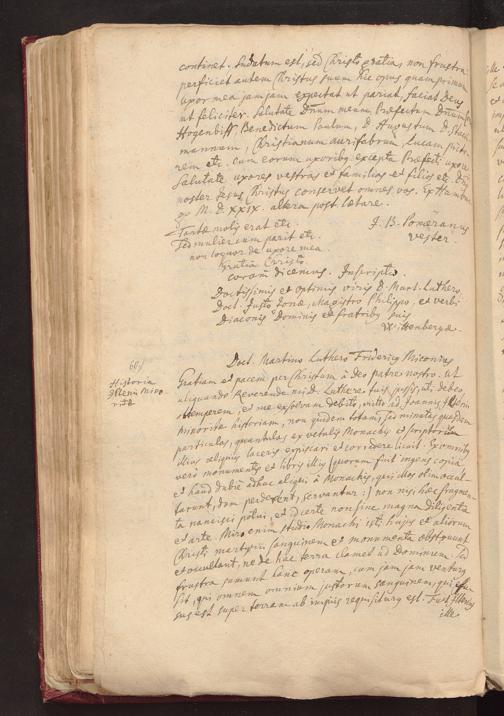 continet. Indatum est, sed Christi gratia, non frustra
perficiet autem Christus suum hic opus quam primum
uxor mea jamjam expectat ut pariat, faciat Deus
ut feliciter. Salutate Dnum meum Præfectum
Hogenbiss Benedictum Paulum, D. Augustum D.
mannum, Christianum aurifabrum, Lucam picto
rem etc. cum eorum uxoribus excepta Præfecti uxore
Salutate uxores vestras et familias et filios etc.
noster Jesus Christus conservet omnes vos. Ex Hamburg
M. D. XXIX. altera post Lætare.
Tantæ molis erat etc.
J. B. Pomeranus
vester
Sed mulier cum parit etc.
non loquor de uxore mea.
Gratia Christo
coram dicemus. Inscriptio.
Doctissimis et optimis viris D. Mart. Luthero,
Doct. Justo Jonæ, Magistro Philippo, et verbi
Diaconis Dominis et fratribus suis
Wittenbergæ.
60)
Historia
Mino-
ritæ
Doct. Martino Luthero Fridericus Miconius
Gratiam et pacem per Christum à deo patre nostro. Ut
aliquando Reverende mi D. Luthere tuis jussis, ut debeo,
obtemperem, et me exsolvam debito, mitto ad Joannis
Minoritæ historiam, non quidem totam, sed minutas quasdam
particulas, quantulas ex vetulis Monachis et scriptorum
illius aliquis laceris expiscari et corradere licuit. Ex omnibus
vero monumentis et libris illis (quorum fuit ingens copia
et haud dubie adhuc aliqui à Monachis, qui illos olim occul-
tarunt, dum perderent, servantur:) non nisi hæc fragmen
ta nancisci potui, et id certe non sine magna diligentia
et arte. Miro enim studio Monachi isti hujus et aliorum
Christi martyrum sanguinem et monumenta obstruunt
et occultant, ne de hac terra clamet ad Dominum. Sed
frustra sumunt hanc operam, cum jam jam venturus
sit, qui omnem omnium justorum sanguinem, qui effu
sus est super terram ab impiis requisiturus est. Fuit
ille